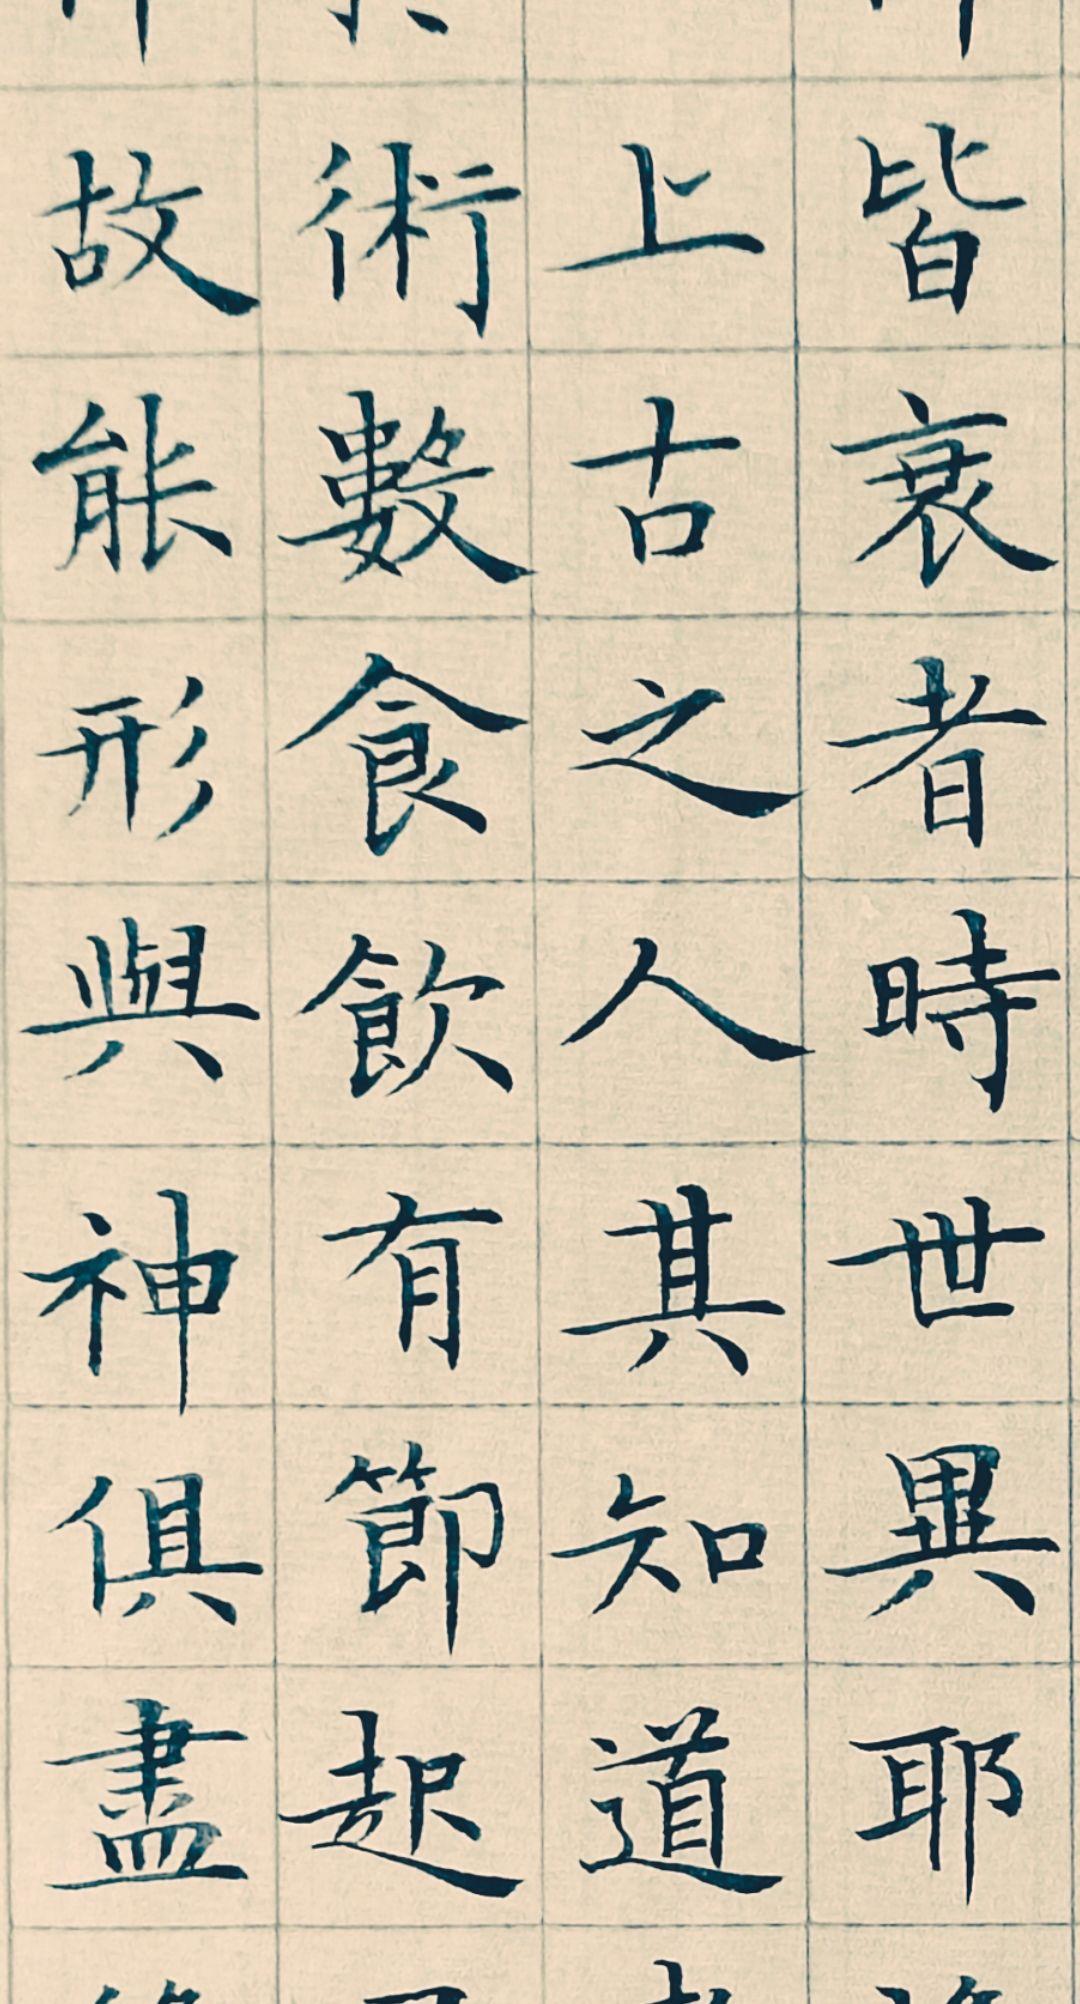 皆衰者時世異耶
上古之人其知道
術數食飲有節起
故能形與神俱盡